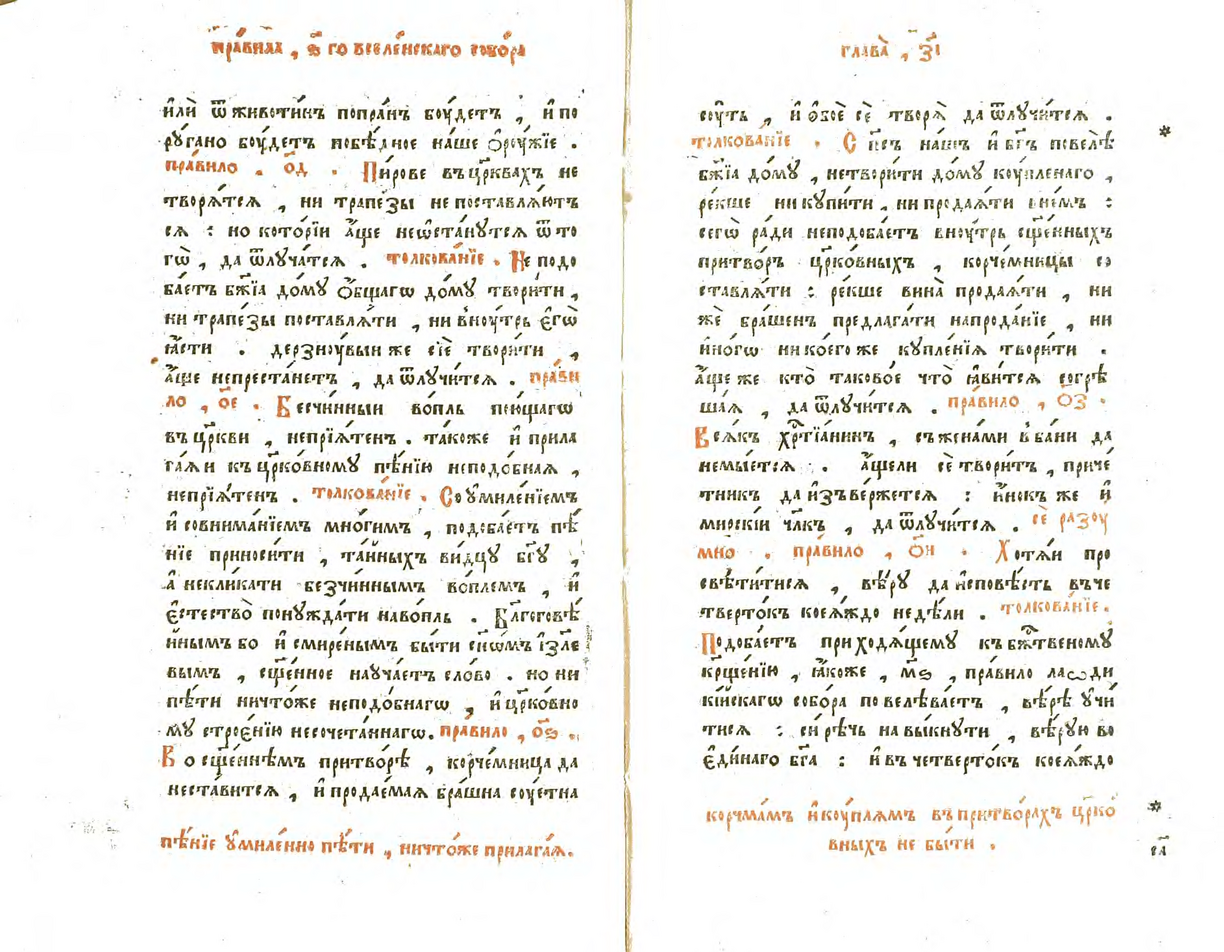 пра́вила , ѕ҃ го вселе́нскаго собо́ра
и҆лѝ ѿживоти́нъ попра́нъ боу́детъ , и҆ по
рꙋ́гано боу́детъ побѣ́дное на́ше ѻ҆роу́жїе .
пра́вило . о҃д . Пи́рове въцр҃квахъ не
творѧ́тсѧ , ни трапе́зы непоставлѧ́ютъ
сѧ : но кото́рїи а҆́ще неѡ҆ста́нꙋтсѧ ѿто
гѡ̀ , да ѿлꙋча́тсѧ . толкова́нїе . Неподо
ба́етъ бж҃їа до́мꙋ ѻ҆́бщагѡ до́мꙋ твори́ти ,
ни трапе́зы поставлѧ́ти , ни внꙋ́трь є҆гѡ̀
ꙗ҆́сти . дерзноу́выи же сїѐ твори́ти ,
а҆́ще непреста́нетъ , да ѿлꙋчи́тсѧ . пра́ви
ло , о҃е . Бесчи́нныи во́пль пою́щагѡ
въцр҃кви , непрїѧ́тенъ . та́коже и҆ прила
га́ѧи къцр҃ко́вномꙋ пѣ́нїю неподо́бнаѧ ,
непрїѧ́тенъ . толкова́нїе . Соу҆миле́нїемъ
и҆ совнима́нїемъ мно́гимъ , подоба́етъ пѣ́
нїе приноси́ти , та́йныхъ ви́дцꙋ бг҃ꙋ ,
а҆ некликати безчи́ннымъ во́племъ , и҆
є҆стество̀ понꙋжда́ти наво́пль . Бл҃гоговѣ́
и҆нымъ бо и҆ смире́нымъ бы́ти сн҃ѡ́мъ і҆зл҃е
вымъ , сщ҃е́нное наꙋча́етъ сло́во . но ни
пѣ́ти ничто́же неподо́бнагѡ , и҆ цр҃ко́вно
мꙋ строє́нїю несочета́ннагѡ . пра́вило , о҃ѕ .
Восще҃ннѣмъ притво́рѣ , корче́мница да
неста́витсѧ , и҆ продае́маѧ бра́шна соу́етна
пѣ́нїе ᲂу҆миле́нно пѣ́ти , ничто́же прилага́ѧ .
глава̀ , з҃і
соу́ть , и҆ ѻ҆боѐ сѐ творѧ̀ да ѿлꙋчи́тсѧ .
толкова́нїе . Сп҃съ на́шъ и҆ бг҃ъ повелѣ̀
бж҃їа до́мꙋ , нетвори́ти до́мꙋ коу́пленаго ,
ре́кше никꙋпи́ти , нипродаѧ́ти внемъ :
сегѡ̀ ра́ди неподоба́етъ вноу́трь сщ҃е́нныхъ
притво́ръ цр҃ко́вныхъ , корче́мницы со
ставлѧ́ти : ре́кше вина̀ продаѧ́ти , ни
жѐ бра́шенъ предлага́ти напрода́нїе , ни
и҆но́гѡ никоего же кꙋпле́нїѧ твори́ти .
а҆́ще же кто̀ таково́е что̀ ꙗ҆ви́тсѧ согрѣ
ша́ѧ , да ѿлꙋчи́тсѧ . пра́вило , о҃з .
Всѧ́къ хрⷭ҇тїа́нинъ , съжена́ми вба́ни да
немы́етсѧ . а҆́щели сѐ твори́тъ , приче́
тникъ да и҆зъве́ржетсѧ : и҆́нокъ же и҆
мирскі́и чл҃къ , да ѿлꙋчи́тсѧ . сѐ разоу́
мно . пра́вило , о҃и . Хотѧ́и про
свѣти́тисѧ , вѣ́рꙋ да и҆сповѣ́сть въче
тверто́къ коеѧ́ждо недѣ́ли . толкова́нїе .
Подоба́етъ приходѧ́щемꙋ къбж҃твеномꙋ
кр҃ще́нїю , ꙗ҆́коже , м҃ѕ , пра́вило лаѡди
кі́йскагѡ собо́ра повелѣва́етъ , вѣ́рѣ ᲂу҆чи́
тисѧ : си́рѣчь навы́кнꙋти , вѣ́рꙋю во
є҆ди́наго бг҃а : и҆ въчетверто́къ коеѧ́ждо
корчма́мъ и҆коу́плѧмъ въпритво́рахъ цр҃ко́
вныхъ не бы́ти .